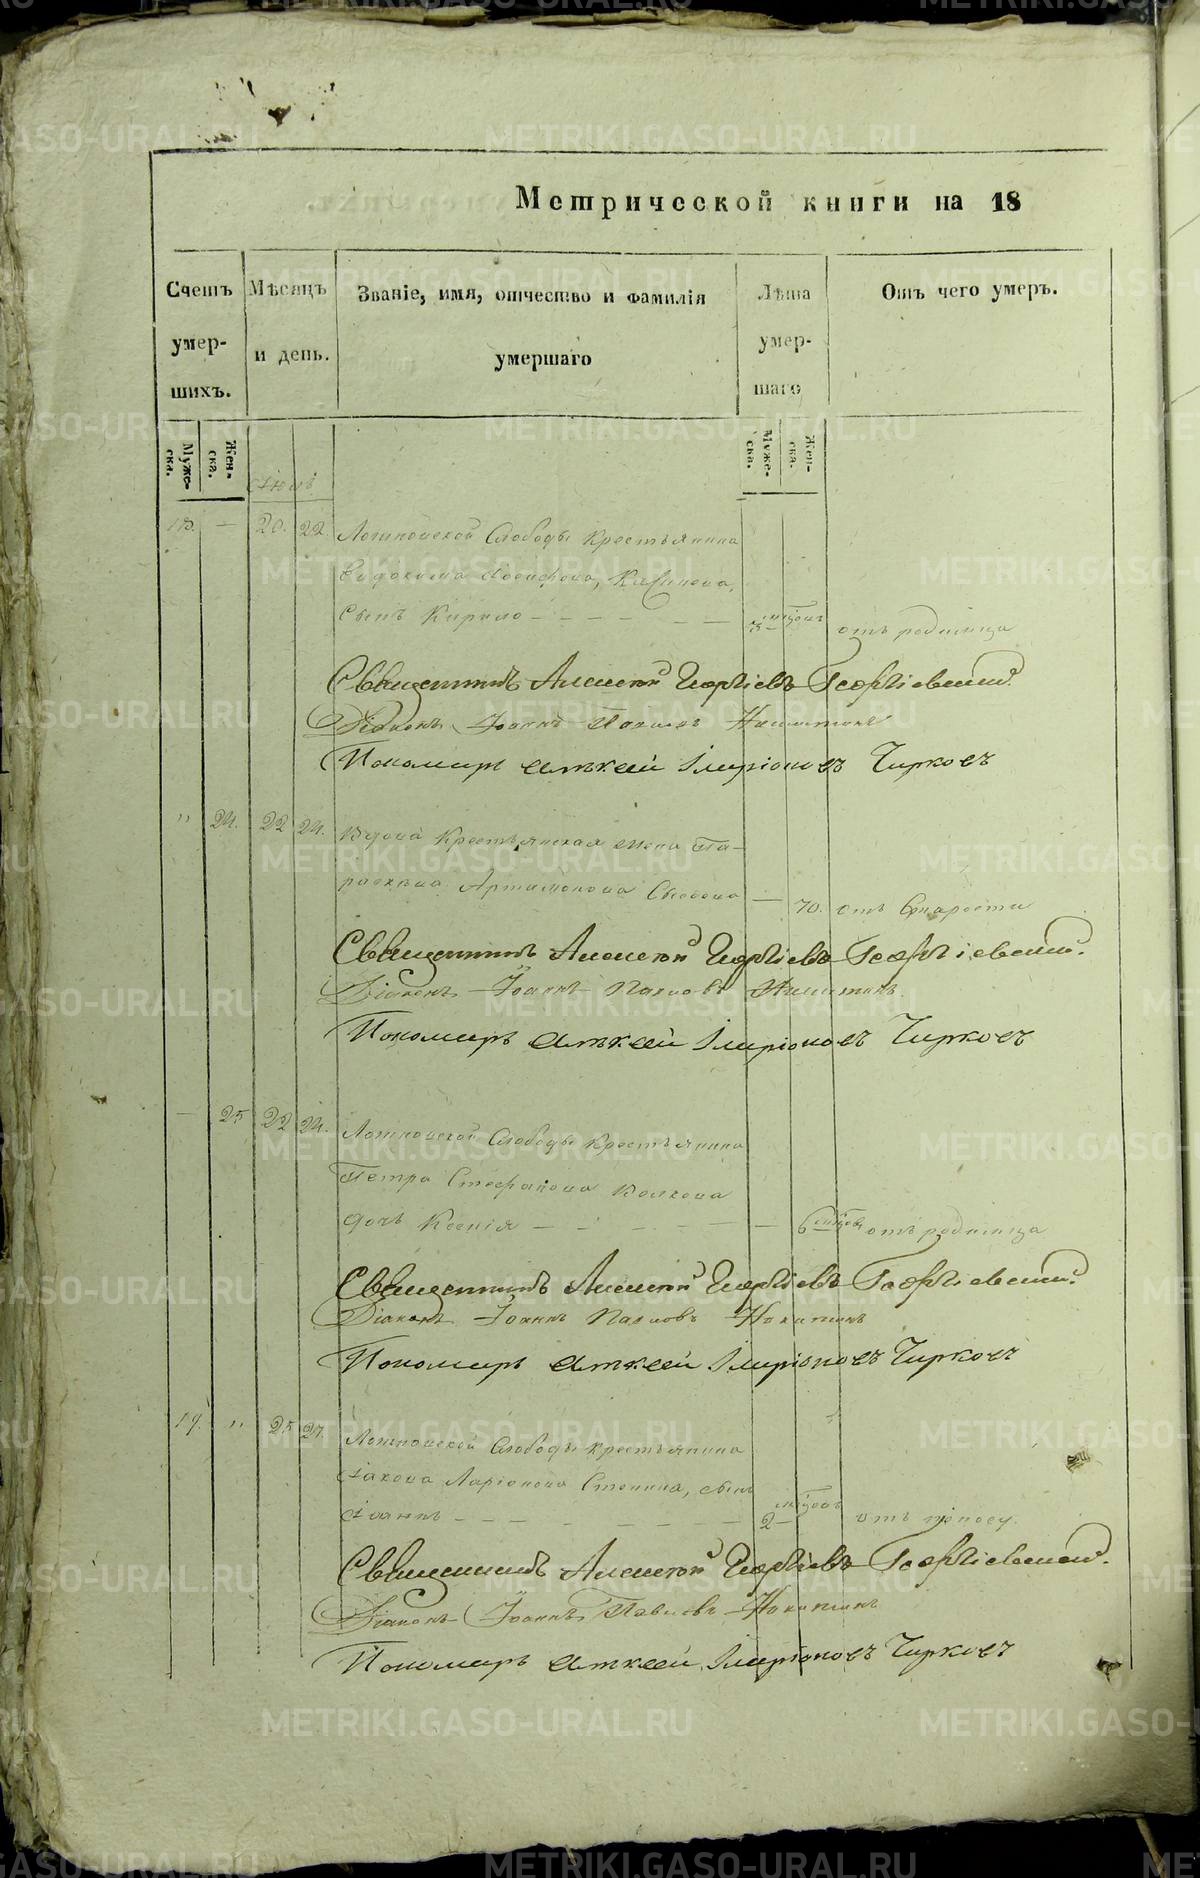 Метрической книги на 18
Счетъ умер- шихъ.
Мѣсяцъ и день.
Званіе, имя, отчество и фамилія умершаго
Лѣта умер- шаго
Отъ чего умеръ.
Муже- ска.
Жен- ска.
Муже- ска.
Жен- ска.
18. — 20. 22. Слободы Крестьянина
сынъ Кирило — — — — — —
3 отъ родимца
Священникъ Алексѣй Георгіевъ Георгіевский
Діаконъ Іоаннъ Павловъ Никитинъ
Пономарь Алексѣй Чирковъ
" 24. 22 24. Вдова Крестьянская жена Па-
раскева Артамонова — 70. отъ старости
Священникъ Алексѣй Георгіевъ Георгіевский.
Діаконъ Іоаннъ Павловъ Никитинъ.
Пономарь Алексѣй Чирковъ
— 25 22 24. Слободы Крестьянина
Петра Стефанова Волкова
дочь Ксенія — — — — — 6 отъ родимца
Священникъ Алексѣй Георгіевъ Георгіевский.
Діаконъ Іоаннъ Павловъ Никитинъ
Пономарь Алексѣй Чирковъ
19. " 25 27. Слободы крестьянина
Іакова Ларіонова сынъ
Іоаннъ — — — — — — 2 отъ поносу.
Священникъ Алексѣй Георгіевъ Георгіевский.
Діаконъ Іоаннъ Павловъ Никитинъ
Пономарь Алексѣй Чирковъ
METRIKI.GASO-URAL.RU